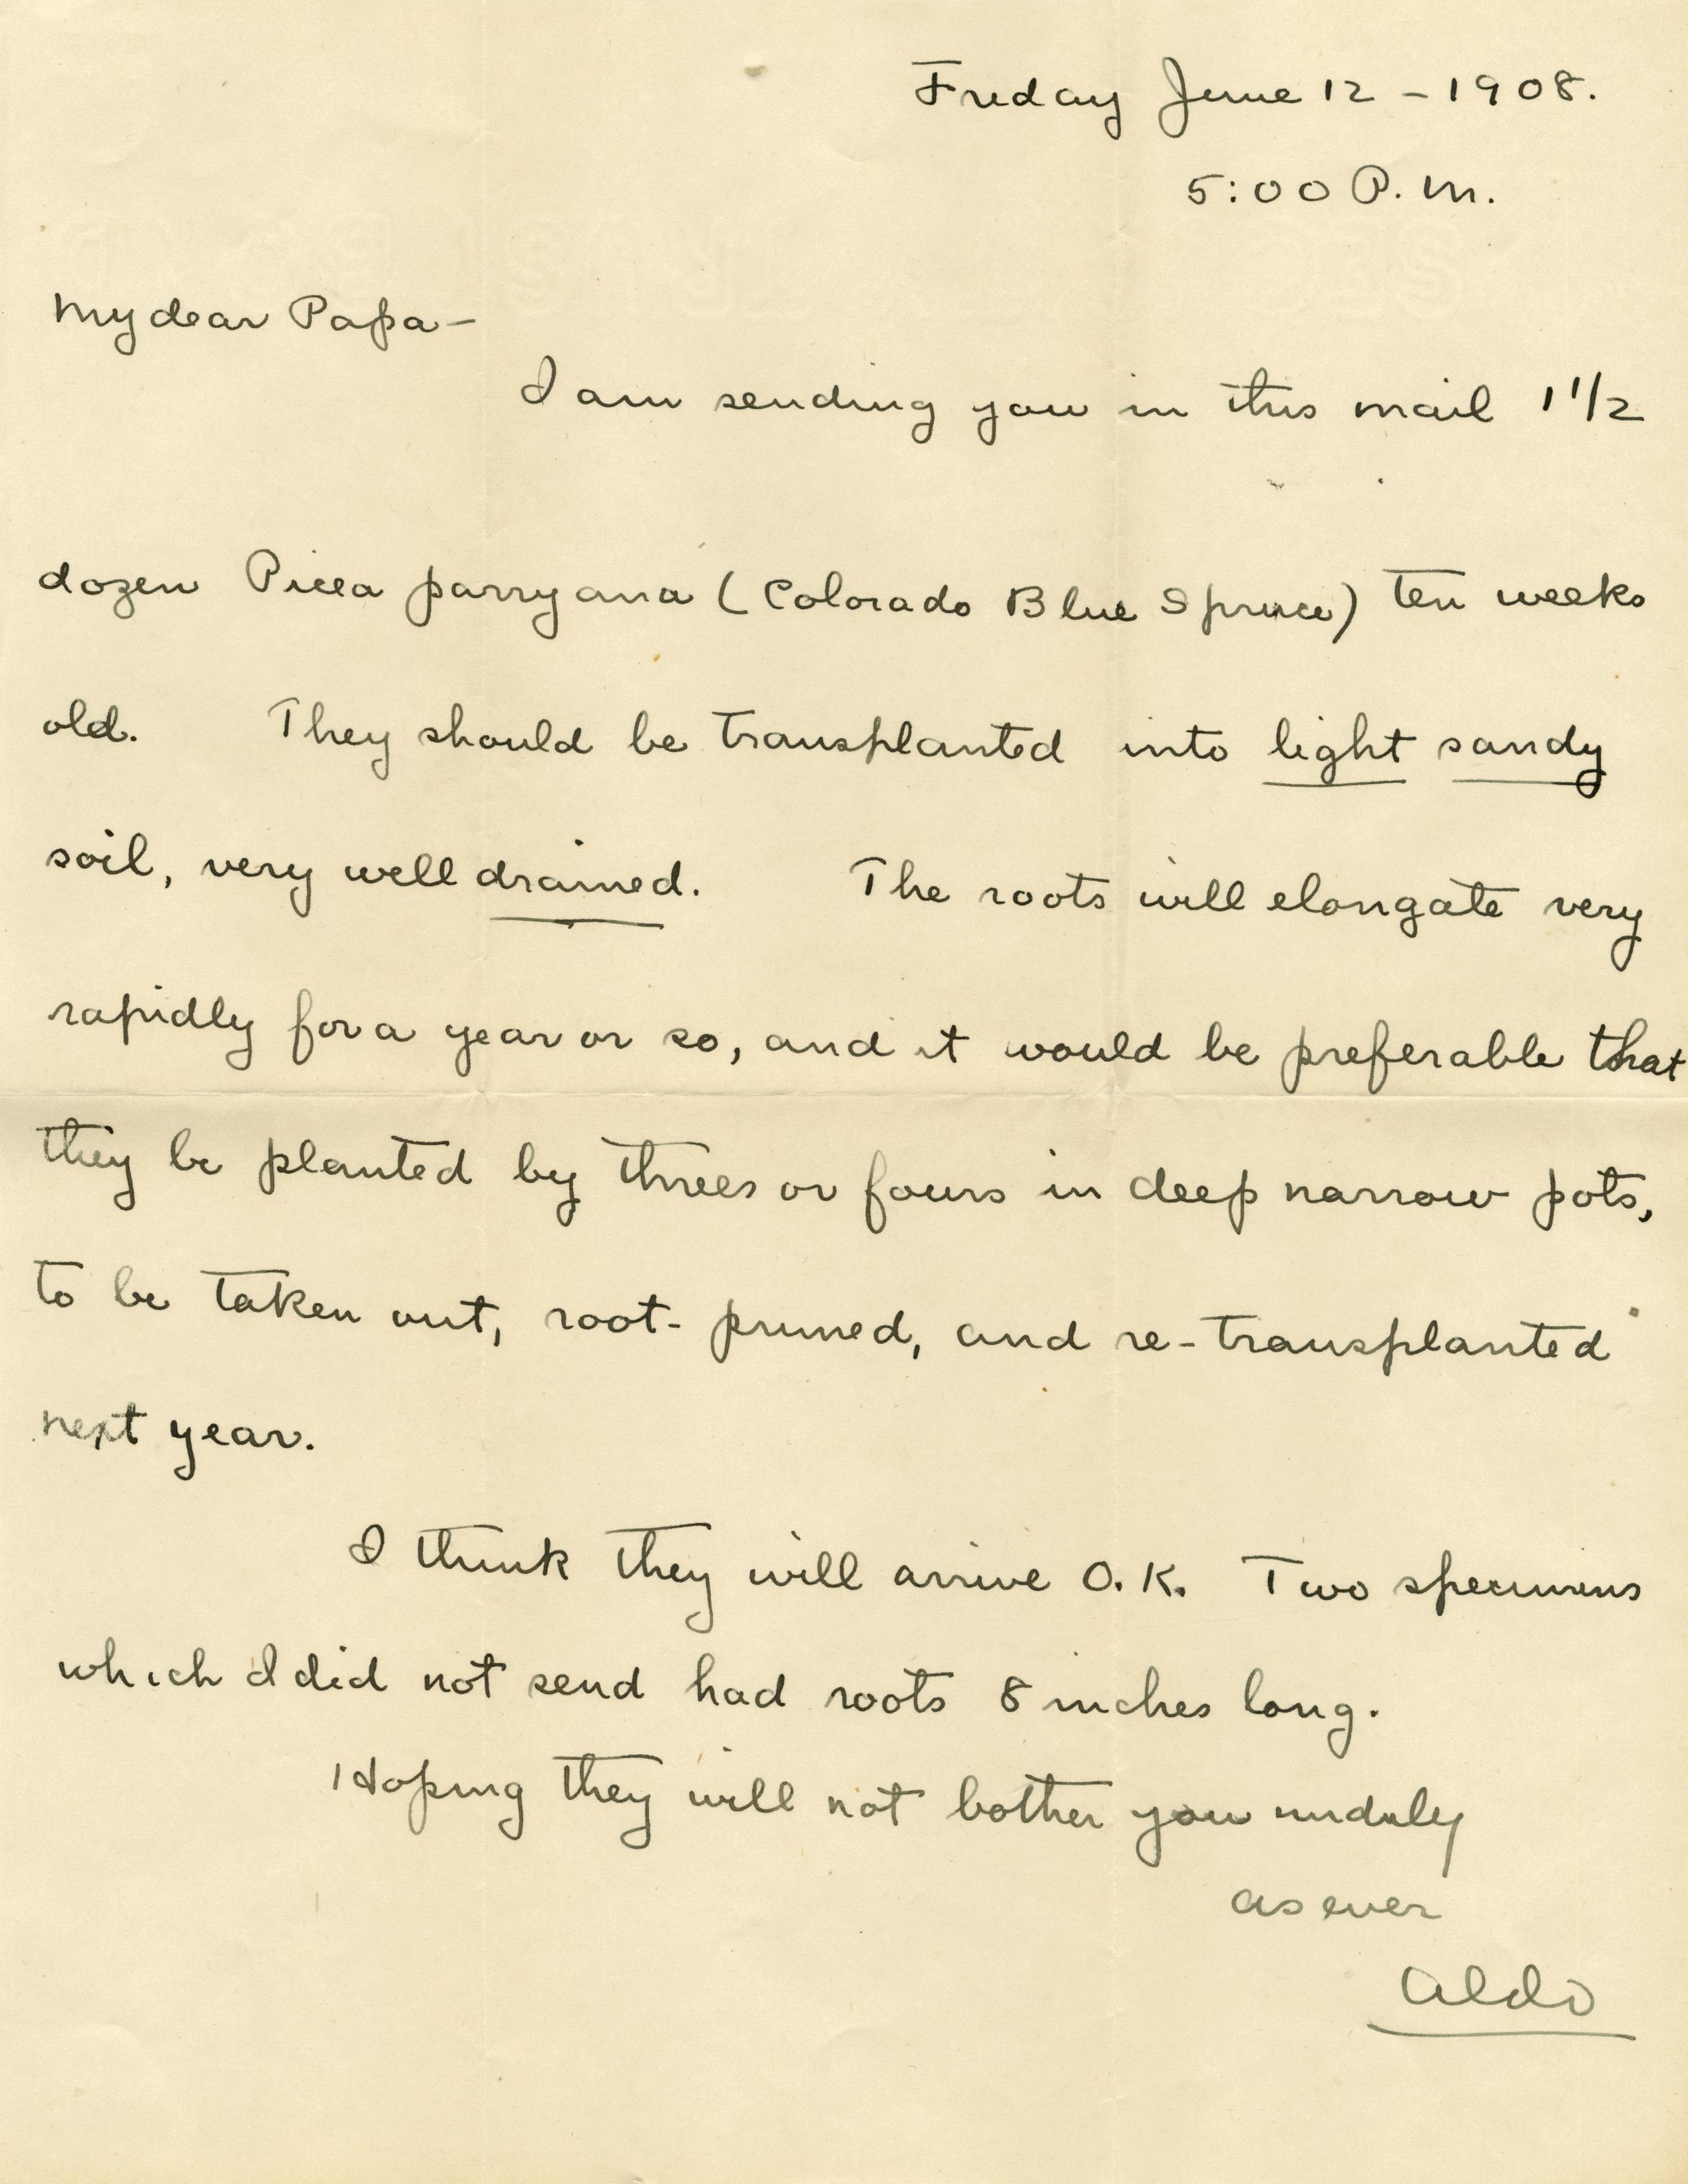 Friday June 12 - 1908.
5:00 P.M.
My dear Papa-
I am sending you in this mail 1 1/2
dozen Picea parryana (Colorado Blue Spruce) ten weeks
old. They should be transplanted into light sandy
soil, very well drained. The roots will elongate very
rapidly for a year or so, and it would be preferable that
they be planted by threes or fours in deep narrow pots,
to be taken out, root-pruned, and re-transplanted
next year.
I think they will arrive O.K. Two specimens
which I did not send had roots 8 inches long.
Hoping they will not bother you unduly
as ever
Aldo